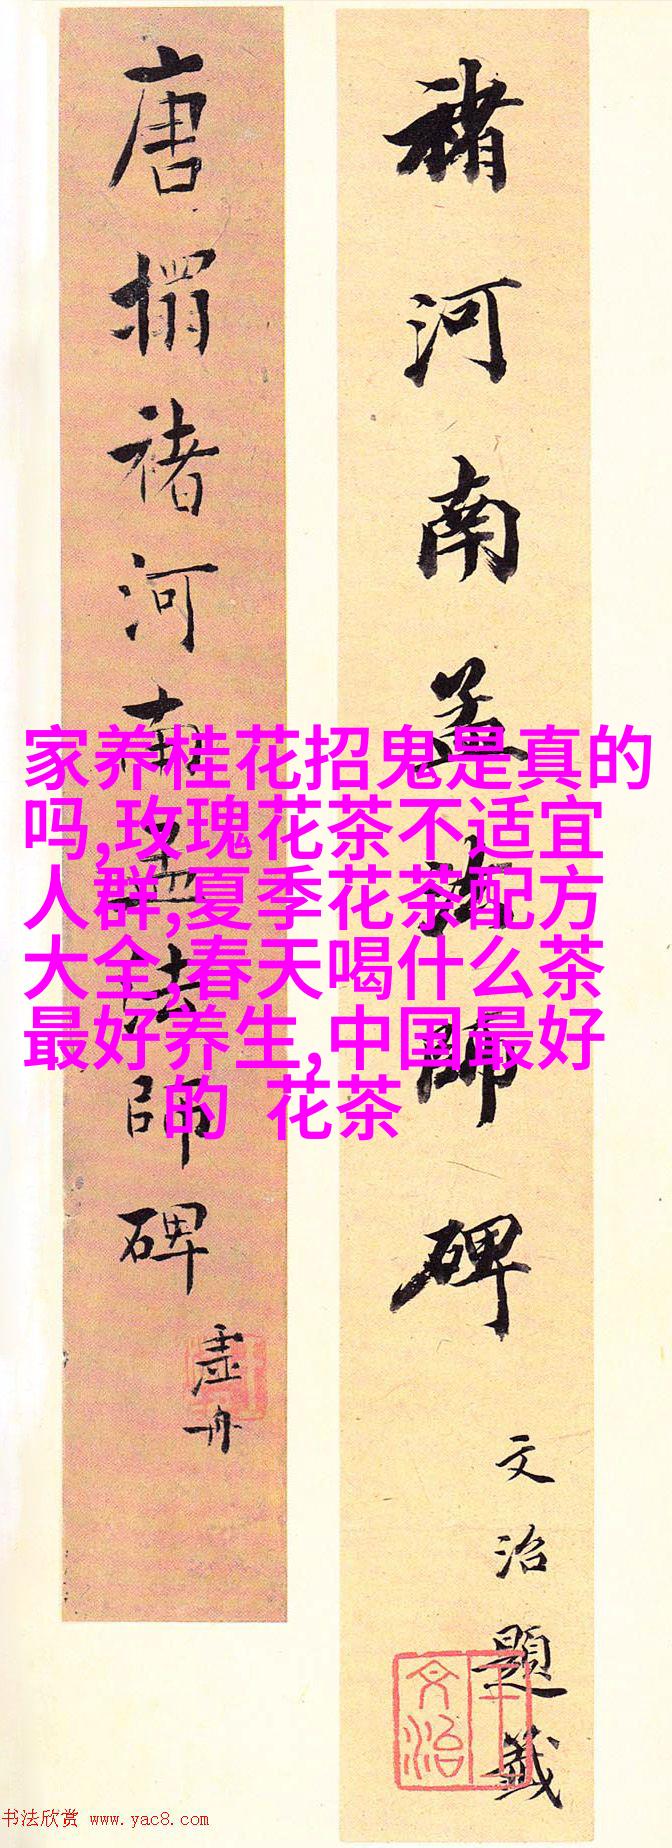 褚河南孟法師碑
文治題籤
王文治
唐搨褚河南孟法師碑
虚舟
家养桂花招鬼是真的
吗,玫瑰花茶不适宜
人群,夏季花茶配方
大全,春天喝什么茶
最好养生,中国最好
的 花茶
书法欣赏 www.yac8.com